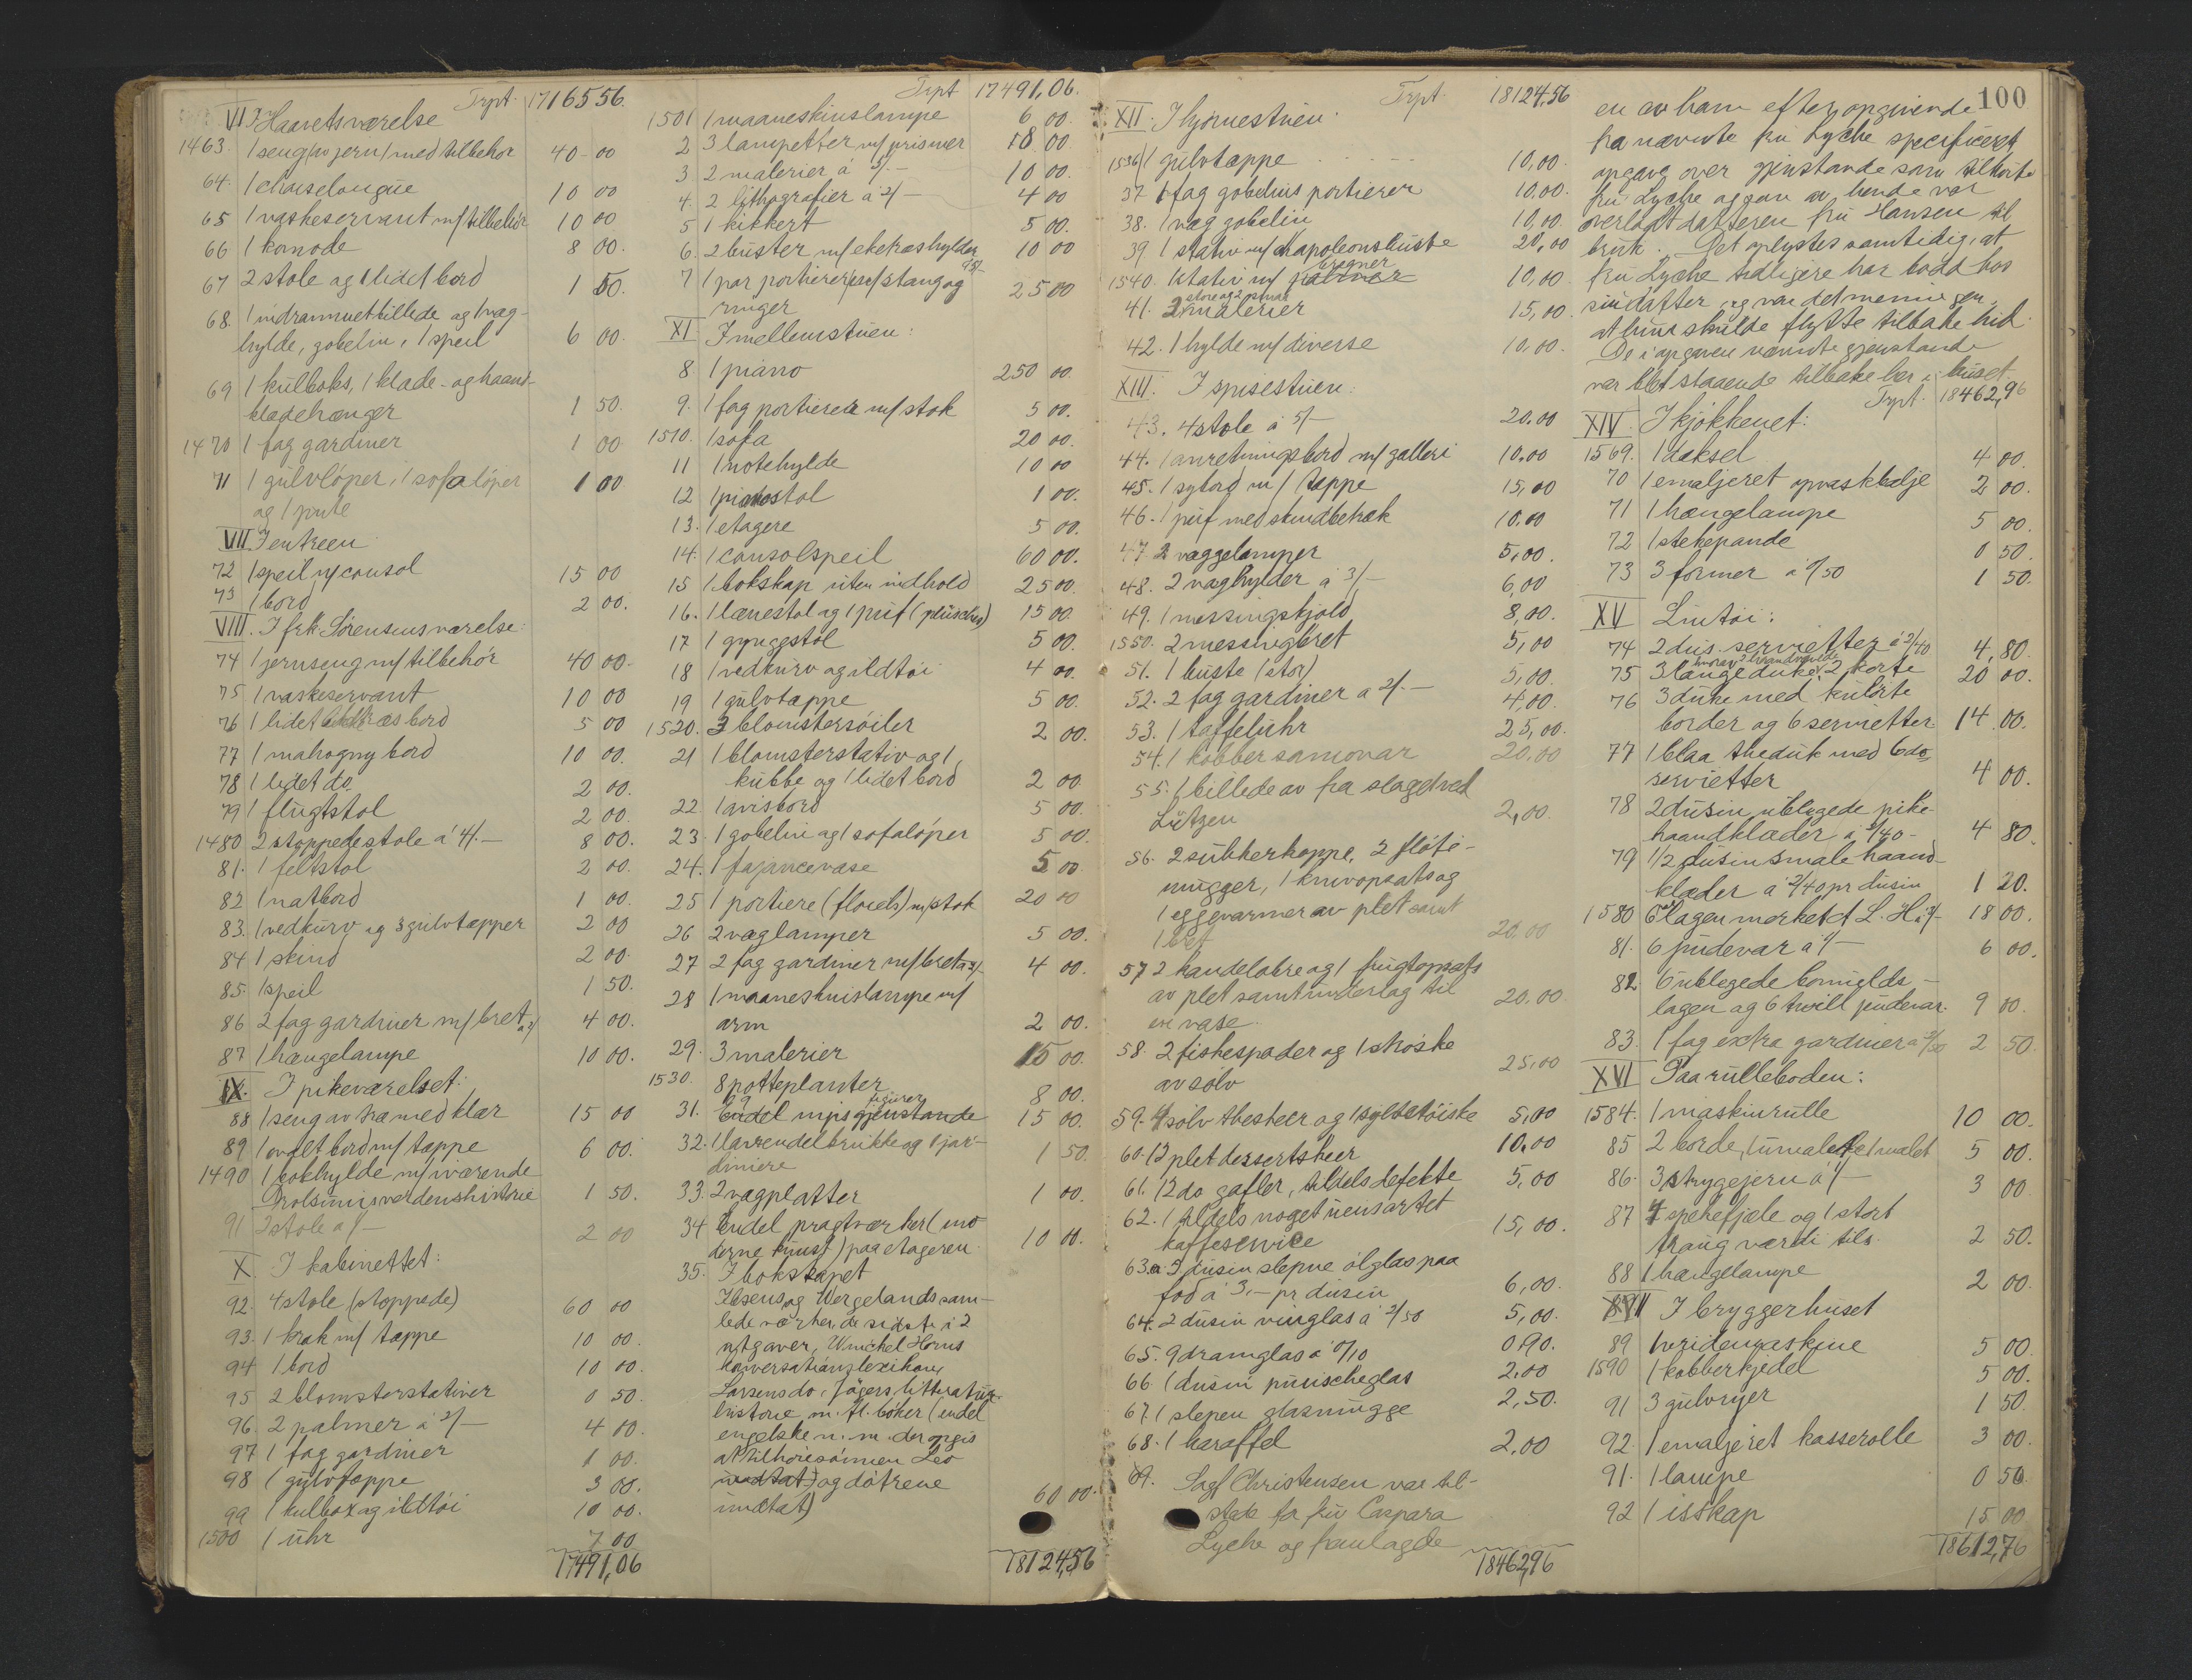 Trpt. 17165 56.
VI I Haarets værelse
1463. 1 seng (av jern) med tilbehør 40 - 00
64. 1 chaiselongue 10 00
65 1 vaskeservant m/ tilbehør 10 00
66 1 komode 8 00.
67 2 stole og 1 lidet bord 1 50.
68. 1 indrammet billede og 1 væg-
hylde, gobelin, 1 speil 6 00.
69 1 kulboks, 1 klæde- og haand-
klædehænger 1 50.
1470 1 fag gardiner 1 00
71 1 gulvlöper, 1 sofalöper 1 00
og 1 pute
VII I entreen
72 1 speil m/ consol 15 00
73 1 bord 2 00.
VIII. I frk Sörensens værelse:
74 1 jernseng m/ tilbehör 40 00
75 1 vaskeservant 10 00
76 1 lidet bord 5 00
77 1 mahogny bord 10 00.
78 1 lidet do. 2 00.
79 1 flugtstol 2 00.
1480 2 stoppede stole á 4/.- 8 00.
81. 1 feltstol 2 00.
82. 1 natbord 1 00.
83. 1 vedkurv og 3 gulvtæpper 2 00
84 1 skind 2 00.
85. 1 speil 1 50.
86 2 fag gardiner m/ bret a 2/ 4 00.
87 1 hængelampe 10 00.
IX. I pikeværelset:
88 1 seng av træ med klær 15 00
89 1 ovalt bord m/ tæppe 6 00.
1490 1 bokhylde m/ iværende
verdenshistorie 1 50.
91 2 stole a 1/- 2 00
X I kabinettet:
92. 4 stole (stoppede) 60 00
93. 1 krak m/ tæppe 10 00.
94 1 bord 10 00.
95 2 blomsterstativer 0 50.
96. 2 palmer á 2/- 4 00.
97 1 fag gardiner 1 00.
98 1 gulvtæppe 3 00.
99 1 kulbox og ildtöi 10 00.
1500 1 uhr 7 00
17491,06
Trpt 17491,06.
1501 1 maaneskinslampe 6 00.
2 3 lampetter m/ prismer 18 00.
3 2 malerier á 5/.- 10 00.
4. 2 lithografier a 2/- 4 00
5 1 kikkert 5 00.
6. 2 buster m/ eketræshylder 10 00
7 1 par portierer m/ stang og
ringer 25 00
XI I mellemstuen:
8 1 piano 250 00.
9. 1 fag portierer m/ stok 5 00.
1510. 1 sofa 20 00.
11 1 notehylde 10 00
12 1 pianostol 1 00.
13. 1 etagere 5 00.
14. 1 consolspeil 60 00.
15 1 bokskap uten indhold 25 00.
16. 1 lænestol og 1 puf (plüsched) 15 00.
17 1 gyngestol 5 00.
18 1 vedkurv og ildtöi 4 00.
19 1 gulvtæppe 5 00.
1520. 3 blomstersöiler 2 00.
21 1 blomsterstativ og 1
kubbe og 1 lidet bord 2 00
22. 1 avisbord 5 00.
23. 1 gobelin og 1 sofalöper 5 00.
24. 1 fajancevase 5 00.
25 1 portiere (floiels) m/ stok 20 00
26 2 væglamper 5 00.
27 2 fag gardiner m/ bret a 2/- 4 00.
28 1 maaneskinslampe m/
arm 2 00.
29. 3 malerier 15 00.
1530. 8 potteplanter 8 00.
31. Endel nips gjenstande figurer 15 00.
32. 1 lavendelkrukke og 1 jar-
diniere 1 50.
33. 2 vægplatter 1 00.
34 Endel pragtverker (mo
derne kunst) paa etageren 10 00.
35. I bokskapet
Ibsens og Wergelands sam-
lede verker, de sidste i 2
utgaver, Winckel Horns
konversationslexikon,
Larsens do, Jägers litteratur-
historie m. fl. böker (endel
engelske m. m. der opgis
at tilhöre sönnen Leo
undtat) og dötrene
undtat) 60 00.
18124,56
Trpt. 18124,56
XII. I hjørnestuen.
1536 1 gulvtæppe 10,00.
37 1 fag gobelins portierer 10,00.
38. 1 væg gobelin 10,00
39 1 stativ m/ Napoleonsbuste 20,00
1540. 1 stativ m/ bregner palmer 10,00.
41. 2 store og 2 smaa malerier 15,00.
42. 1 hylde m/ diverse 10,00.
XIII. I spisestuen:
43. 4 stole a 5/- 20.00
44. 1 anretningsbord m/ galleri 10.00
45. 1 sybord m/ tæppe 15,00
46. 1 puf med skindbetræk 10.00
47 2 væggelamper 5,00.
48. 2 væghylder á 3/- 6,00
49. 1 messingskjold 8,00.
1550. 2 messingbret 5,00
51. 1 buste (stor) 5,00.
52. 2 fag gardiner a 2/.- 4,00.
53. 1 taffeluhr 25,00.
54. 1 kobber samovar 20,00
55. 1 billede av fra slaget ved
Lützen 2,00.
56. 2 sukkerkoppe, 2 flöte-
mugger, 1 knivopsats og
1 eggevarmer av plet samt
1 bret 20,00
57 2 kandelabre og 1 frugtopsats
av plet samt underlag til
en vase. 20,00
58. 2 fiskespader og 1 stöske
av sölv 25,00
59. 4 sölv theskeer og 1 syltetöiske 5,00
60. 12 plet dessertskeer 10,00
61. 12 do gafler, tildels defekte 5,00
62. 1 tildels noget uensartet
kaffeservice 15,00.
63. a 3 dusin slepne ölglas paa
fod á 3,- pr dusin 6,00.
64. 2 dusin vinglas á 2/50 5,00.
65. 9 dramglas a 0/10 0.90.
66. 1 dusin punscheglas 2,00
67. 1 slepen glasmugge 2,50.
68. 1 karaffel 2,00
69. Sagf Christensen var til-
stede for fru Caspara
Lyche og fremlagde
18462,96
100
en av ham efter opgivende
fra nævnte fru Lyche specificert
opgave over gjenstande som tilhörte
fru Lyche og som av hende var
overladt datteren fru Hansen til
bruk. Det oplystes samtidig, at
fru Lyche tidligere har bodd hos
sin datter, og var det meningen,
at hun skulde flytte tilbake hid.
De i opgaven nævnte gjenstande
var blet staaende tilbake her i huset
Trpt. 18462,96
XIV. I kjökkenet:
1569. 1 deksel 4 00.
70 1 emaljeret opvaskbalje 2 00.
71 1 hængelampe 5 00.
72 1 stekepande 0 50.
73 3 former á 0/50 1 50.
XV Lintöi:
74 2 dus. servietter á 2/40 4,80.
75 3 lange duke, 2 korte 20 00.
76 3 duke med kulörte
border og 6 servietter 14 00.
77 1 blaa theduk med 6 do.
servietter 4 00.
78 2 dusin ublegede pike
haandklæder a 2/40 - 4 80.
79 1/2 dusin smale haand-
klæder á 2/40 pr dusin 1 20.
1580 6 lagen merket A L. H. á 3/- 18 00.
81. 6 pudevar á 1/- 6 00.
82. 6 ublegede bomulds-
lagen og 6 twill pudevar. 9 00.
83. 1 fag extra gardiner 2 50.
XVI Paa rulleboden:
1584. 1 maskinrulle 10 00.
85 2 borde, 1 umalet 1 malet 5 00.
86. 3 strygejern á 1/- 3 00
87 4 spekefjele og 1 stort
traug værdi tils. 2 50.
88 1 hængelampe 2 00.
XVII I bryggerhuset
89 1 vridemaskine 5 00.
1590 1 kobberkjedel 5 00.
91 3 gulvryer 1 50.
92. 1 emaljeret kasserolle 3 00.
91. 1 lampe 0 50.
92 1 isskap 15 00
18612,76